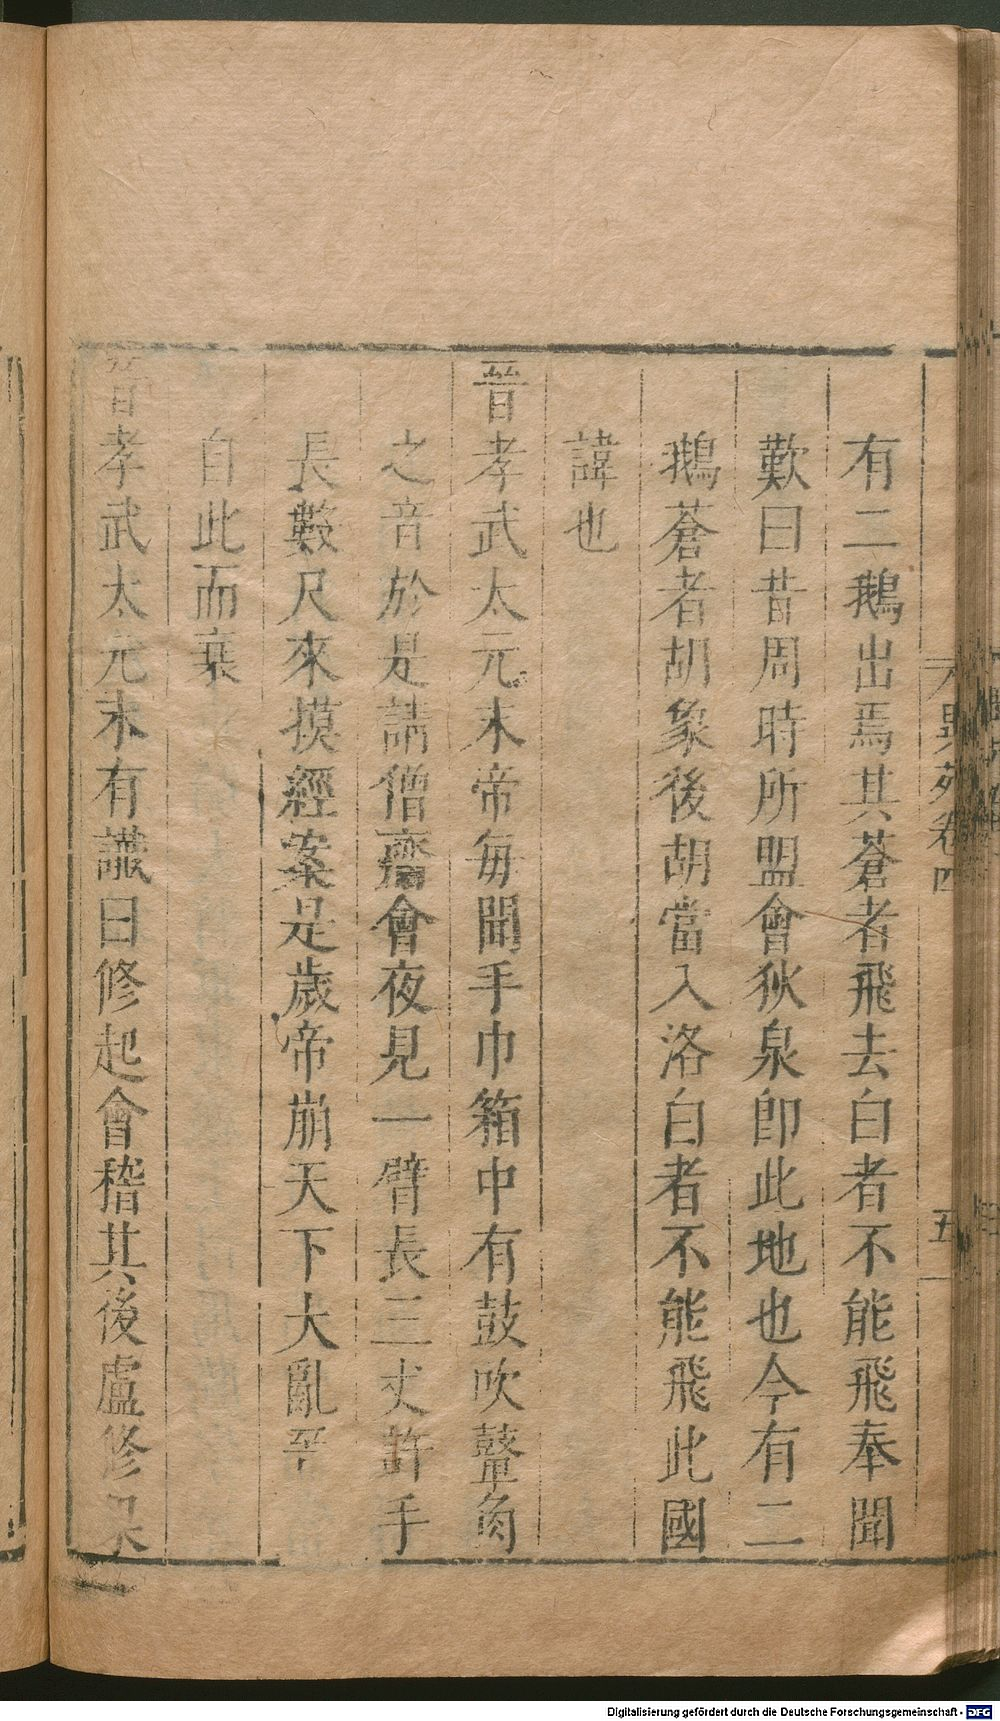 有二鵝出焉其蒼者飛去白者不能飛奉聞
歎曰昔周時所盟會狄泉即此地也今有二
鵝蒼者胡象後胡當入洛白者不能飛此國
諱也
晉孝武太元末帝每聞手巾箱中有鼓吹鼙角
之音於是請僧齋會夜見一臂長三丈許手
長數尺來摸經案是歲帝崩天下大亂
自此而衰
晉孝武太元末有讖曰修起會稽其後盧修
異苑卷四
五
Digitalisierung gefördert durch die Deutsche Forschungsgemeinschaft - DFG